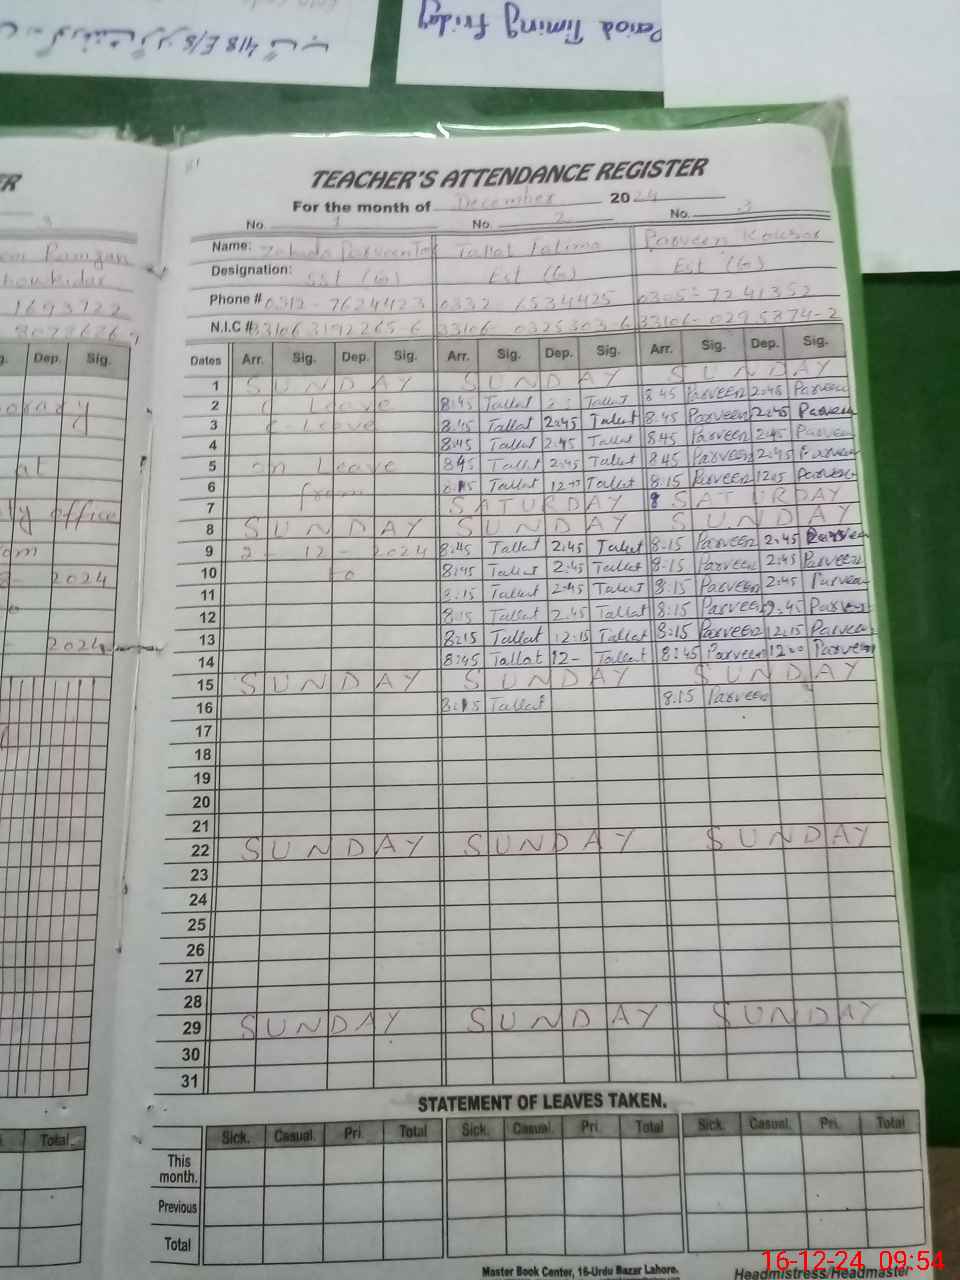 418 E/B
Period Timing Friday
ER
TEACHER'S ATTENDANCE REGISTER
For the month of December 2024
No. 1 No. 2 No. 3
Name: Tallat Fatima Parveen Kousar
Designation: SST (G) Est (G) Est (G)
Phone # 0312-7624423 0332-6534425 0305-7241352
N.I.C # 33106 3192265-6 33106-0325303-6 33106-0295874-2
1693722
Dates Arr. Sig. Dep. Sig. Arr. Sig. Dep. Sig. Arr. Sig. Dep. Sig.
g. Dep. Sig.
1 SUNDAY SUNDAY SUNDAY
2 C Leave 8:45 Tallat Tallat 8:45 Parveen 2:45 Parveen
3 C-Leave 8:45 Tallat 2:45 Tallat 8:45 Parveen 2:45 Parveen
4 8:45 Tallat 2:45 Tallat 8:45 Parveen 2:45 Parveen
5 on Leave 8:45 Tallat 2:45 Tallat 8:45 Parveen 2:45 Parveen
6 from Tallat Tallat 8:15 Parveen 12:15 Parveen
7 SATURDAY 8 SATURDAY
8 SUNDAY SUNDAY SUNDAY
9 2-12-2024 8:45 Tallat 2:45 Tallat 8:15 Parveen 2:45 Parveen
10 to 8:45 Tallat 2:45 Tallat 8:15 Parveen 2:45 Parveen
11 8:15 Tallat 2:45 Tallat 8:15 Parveen 2:45 Parveen
12 8:15 Tallat 2:45 Tallat 8:15 Parveen 2:45 Parveen
13 8:15 Tallat 12:15 Tallat 8:15 Parveen 12:15 Parveen
14 8:45 Tallat 12- Tallat 8:45 Parveen 12:00 Parveen
15 SUNDAY SUNDAY SUNDAY
16 8:15 Tallat 8:15 Parveen
17
18
19
20
21
22 SUNDAY SUNDAY SUNDAY
23
24
25
26
27
28
29 SUNDAY SUNDAY SUNDAY
30
31
at
office
2024
2024
STATEMENT OF LEAVES TAKEN.
Sick. Casual. Pri. Total Sick. Casual. Pri. Total Sick. Casual. Pri. Total
Total
This month.
Previous
Total
Master Book Center, 16-Urdu Bazar Lahore.
Headmistress/Headmaster
16-12-24 09:54